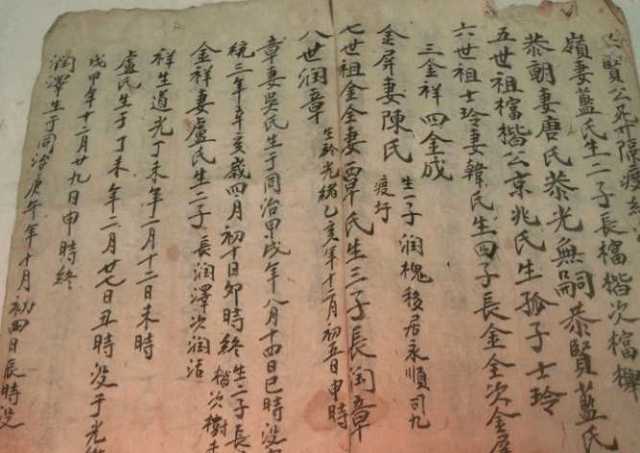 賢公
嶺妻藍氏生二子長檔楷次檔
恭朝妻唐氏恭光無嗣恭賢藍氏
五世祖檔楷公京兆氏生孤子士玲
六世祖士玲妻韓氏生四子長金全次金屏
三金祥四金成
金屏妻陳氏生一子润槐移居永順司九
渡圩
七世祖金全妻覃氏生三子長润章
八世润章生於光緒乙亥年十一月初五日申時
章妻吳氏生于同治甲戌年八月十四日巳時没
統三年辛亥歲四月初十日卯時終生二子長
楷次樹
金祥妻盧氏生二子長润澤次润活
祥生道光丁未年二月十二日未時
盧氏生于丁未年二月廿七日丑時没于光緒
戊甲年十二月廿九日申時終
润澤生于同治庚午年十月初四日辰時没